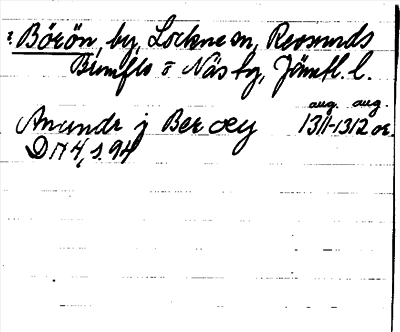 Börön, by, Lockne sn, Revsunds
Brunflo o Näs tg, Jämtl. l.
aug. aug.
Anundr j Ber oey 1311-1312 or.
DN 4, s. 94